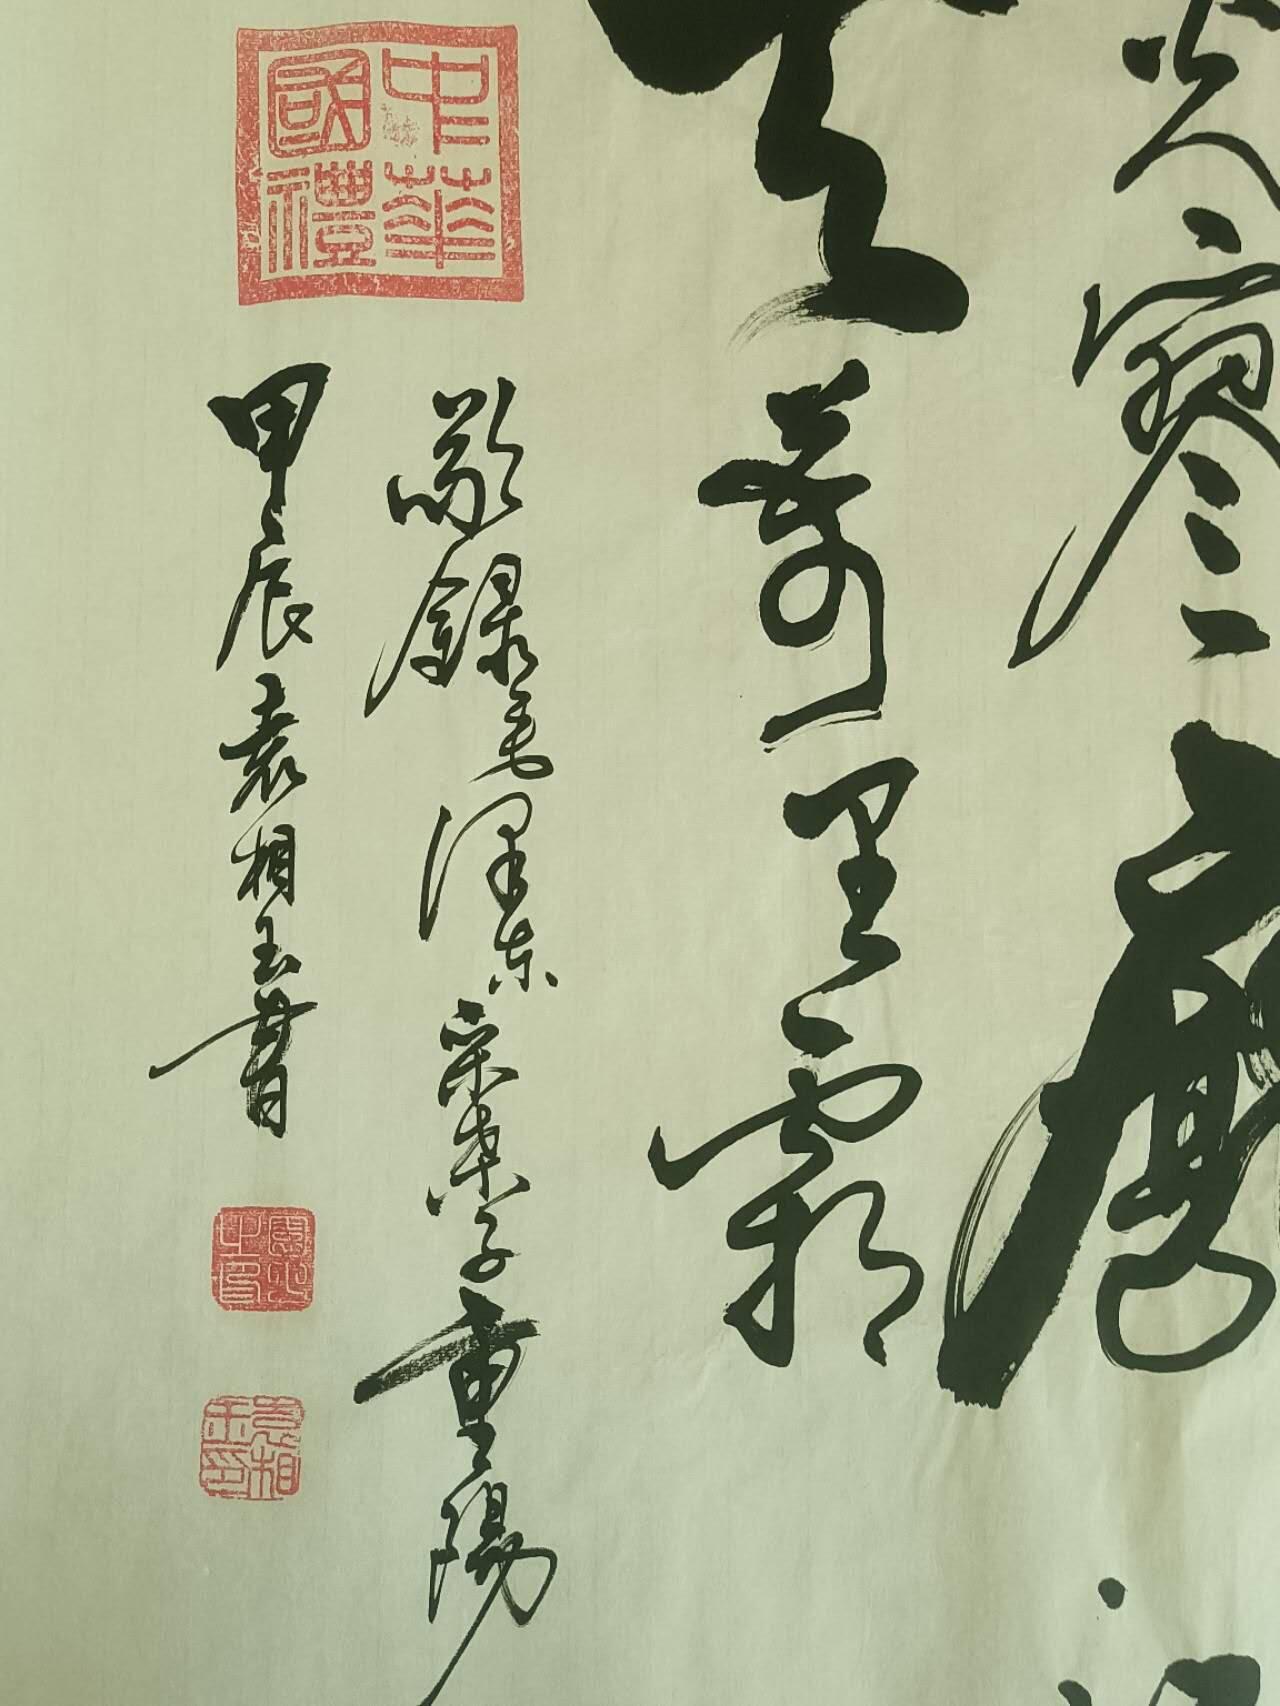 光寥廓江
天萬里霜
敬錄毛澤东采桑子重陽
中華國禮
甲辰袁相玉書
袁相玉印